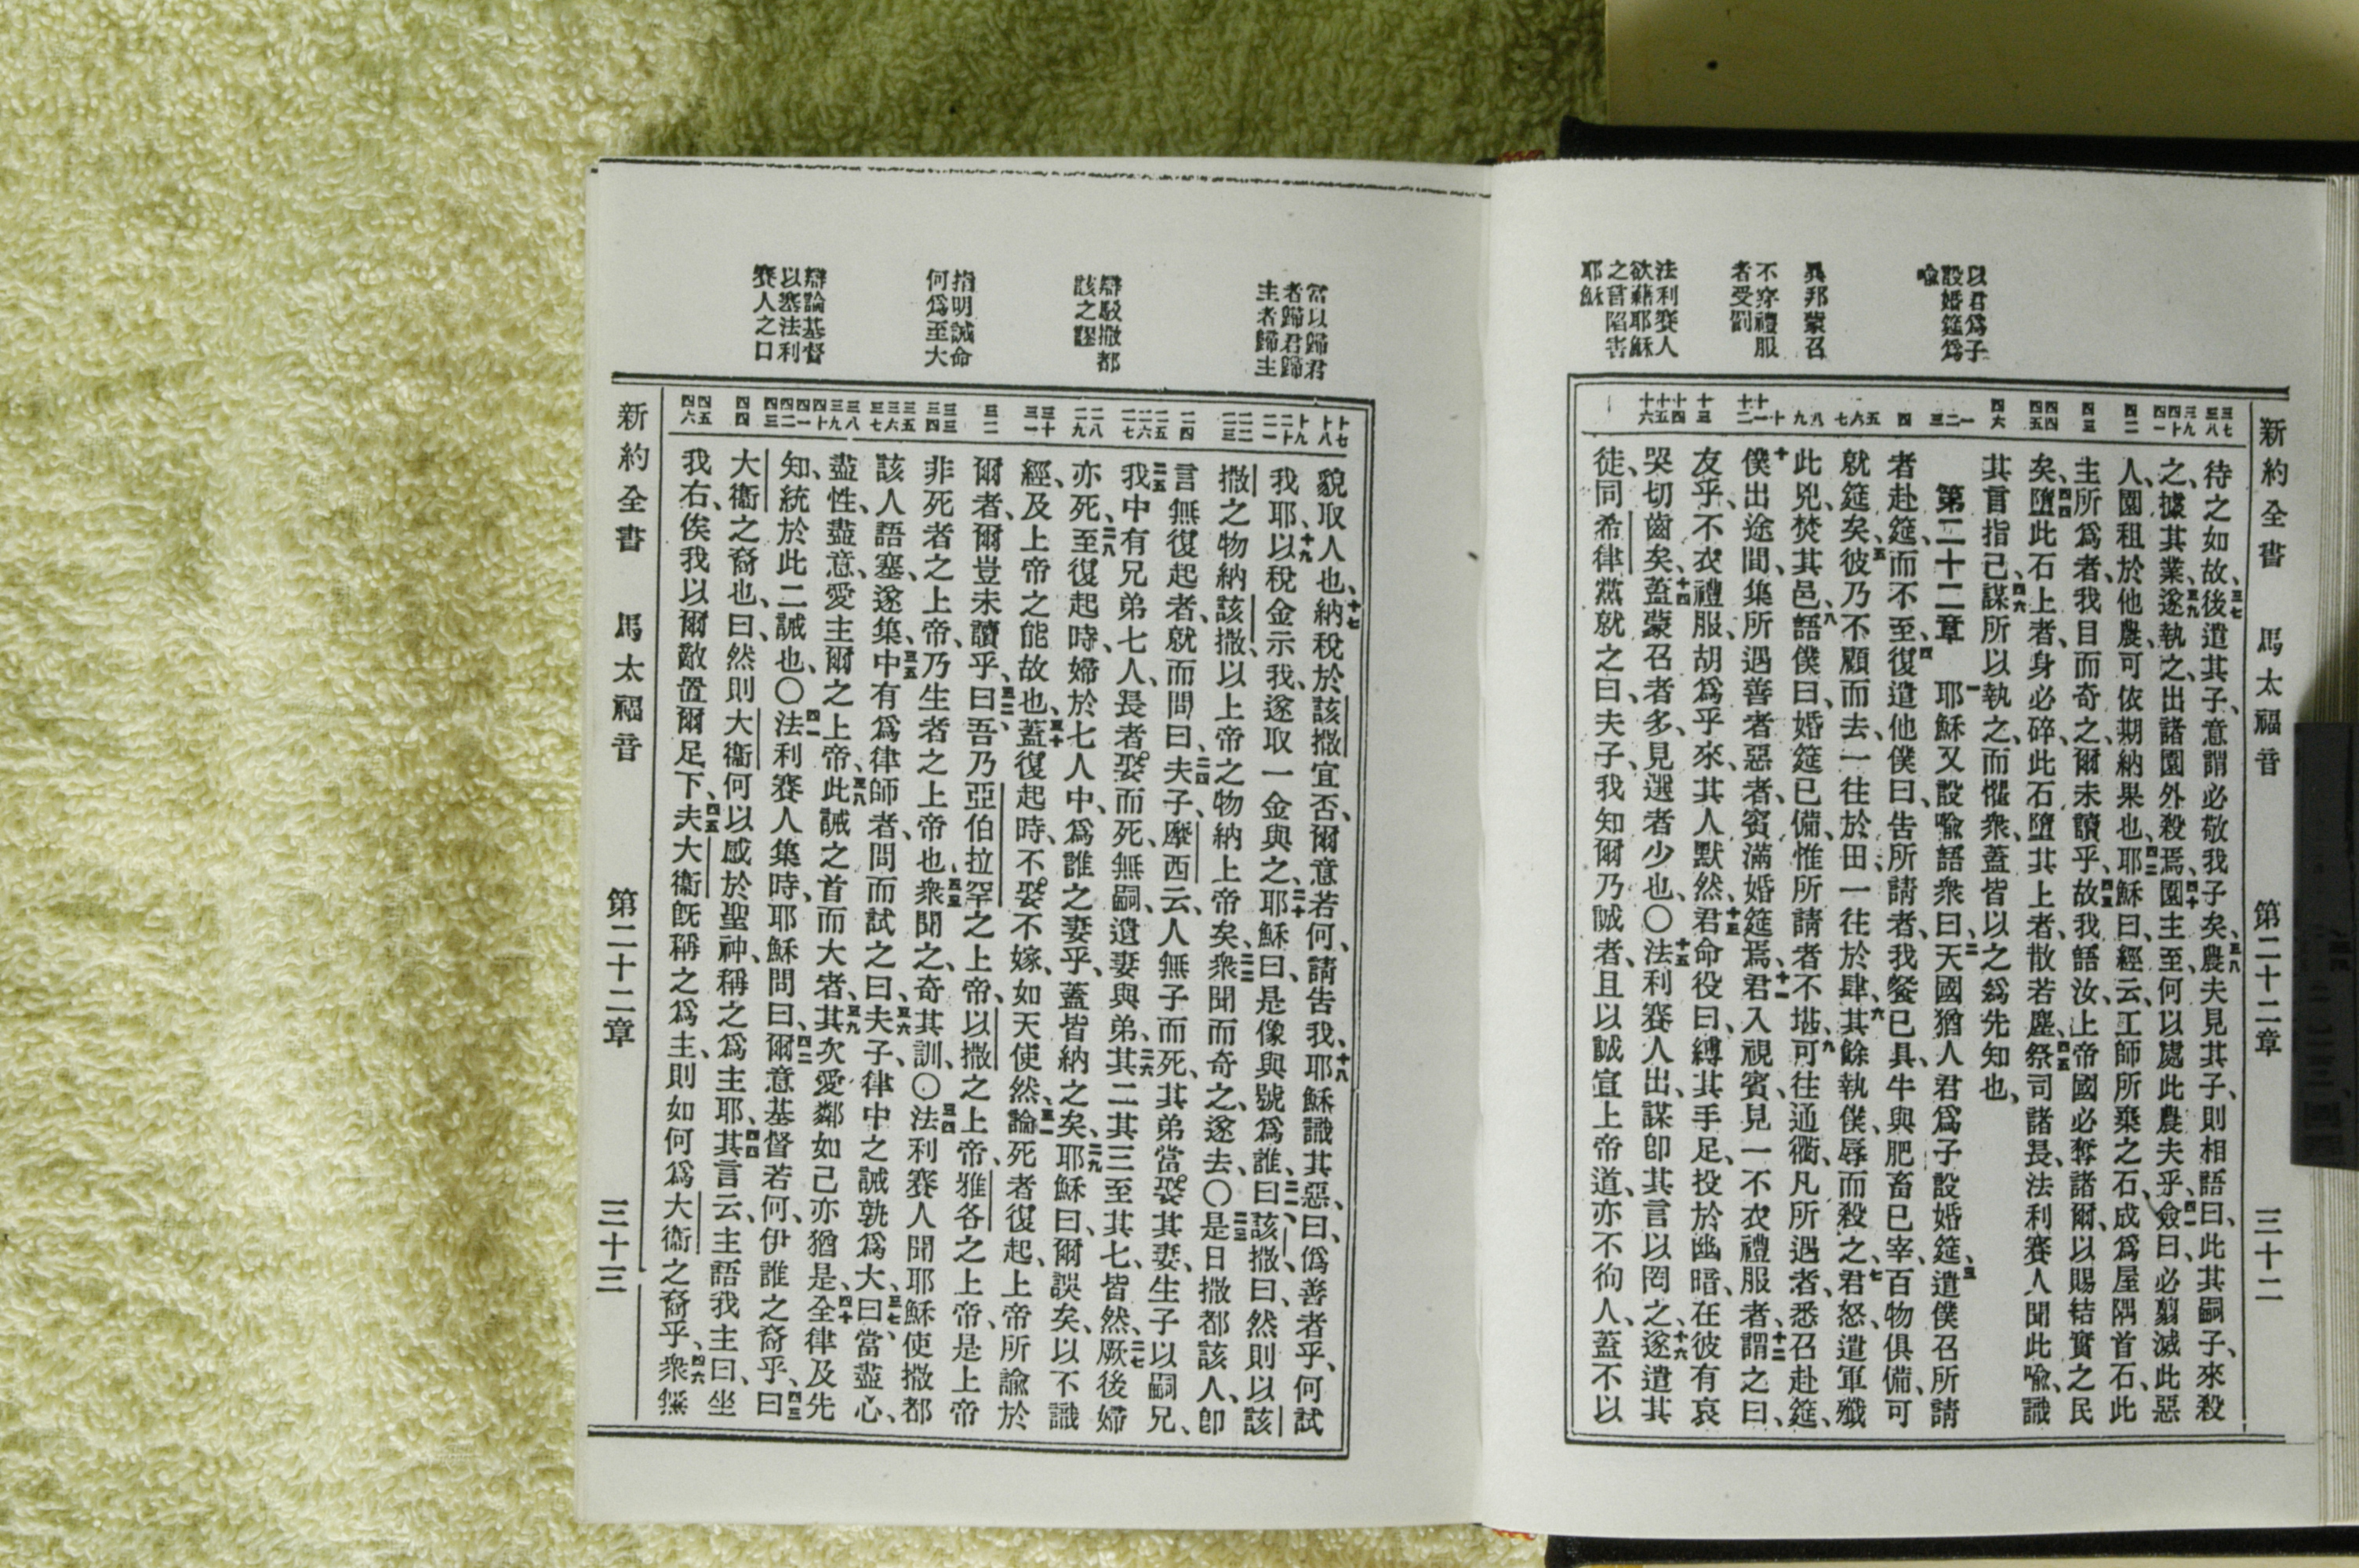 新約全書 馬太福音 第二十二章 三十二
以君爲子
設婚筵爲
喩
異邦蒙召
不穿禮服
者受罰
法利賽人
欲藉耶穌
之言陷害
耶穌
待之如故、後遣其子、意謂必敬我子矣、農夫見其子、則相語曰、此其嗣子、來殺
之、據其業、遂執之、出諸園外殺焉、園主至、何以處此農夫乎、僉曰、必翦滅此惡
人、園租於他農、可依期納果也、耶穌曰、經云、工師所棄之石、成爲屋隅首石、此
主所爲者、我目而奇之、爾未讀乎、故我語汝、上帝國必奪諸爾、以賜結實之民
矣、墮此石上者、身必碎、此石墮其上者、散若塵、祭司諸長、法利賽人聞此喩、識
其言指己、謀所以執之、而懼衆、蓋皆以之爲先知也、
第二十二章 耶穌又設喩語衆曰、天國猶人君爲子設婚筵、遣僕召所請
者赴筵、而不至、復遣他僕曰、吿所請者、我餐已具、牛與肥畜已宰、百物俱備、可
就筵矣、彼乃不顧而去、一往於田、一往於肆、其餘執僕、辱而殺之、君怒、遣軍殲
此兇、焚其邑、語僕曰、婚筵已備、惟所請者不堪、可往通衢、凡所遇者、悉召赴筵、
僕出途間、集所遇善者惡者、賓滿婚筵焉、君入視賓、見一不衣禮服者、謂之曰、
友乎、不衣禮服、胡爲乎來、其人默然、君命役曰、縛其手足、投於幽暗、在彼有哀
哭切齒矣、蓋蒙召者多、見選者少也、〇法利賽人出、謀卽其言以罔之、遂遣其
徒、同希律黨就之曰、夫子、我知爾乃誠者、且以誠宣上帝道、亦不徇人、蓋不以
當以歸君
者歸君歸
主者歸主
辯駁撒都
該之謬
指明誡命
何爲至大
辯論基督
以塞法利
賽人之口
貌取人也、納稅於該撒宜否、爾意若何、請吿我、耶穌識其惡、曰、僞善者乎、何試
我耶、以稅金示我、遂取一金與之、耶穌曰、是像與號爲誰、曰、該撒、曰、然則以該
撒之物納該撒、以上帝之物納上帝矣、衆聞而奇之、遂去、〇是日撒都該人、卽
言無復起者、就而問曰、夫子、摩西云、人無子而死、其弟當娶其妻、生子以嗣兄、
我中有兄弟七人、長者娶而死、無嗣、遺妻與弟、其二其三至其七、皆然、厥後婦
亦死、至復起時、婦於七人中、爲誰之妻乎、蓋皆納之矣、耶穌曰、爾誤矣、以不識
經、及上帝之能故也、蓋復起時、不娶不嫁、如天使然、論死者復起、上帝所諭於
爾者、爾豈未讀乎、曰、吾乃亞伯拉罕之上帝、以撒之上帝、雅各之上帝、是上帝
非死者之上帝、乃生者之上帝也、衆聞之、奇其訓、〇法利賽人聞耶穌使撒都
該人語塞、遂集、中有爲律師者、問而試之曰、夫子、律中之誡孰爲大、曰、當盡心、
盡性、盡意、愛主爾之上帝、此誡之首而大者、其次愛鄰如己亦猶是、全律及先
知、統於此二誡也、〇法利賽人集時、耶穌問曰、爾意基督若何、伊誰之裔乎、曰
大衞之裔也、曰、然則大衞何以感於聖神、稱之爲主耶、其言云、主語我主曰、坐
我右、俟我以爾敵置爾足下、夫大衞旣稱之爲主、則如何爲大衞之裔乎、衆無
新約全書 馬太福音 第二十二章 三十三